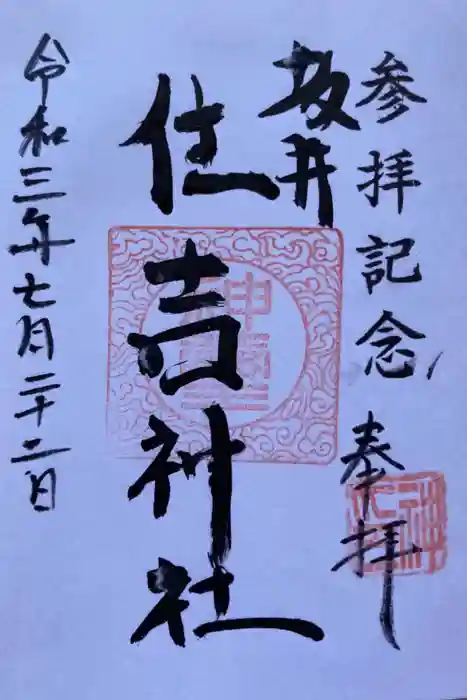 参拝記念 奉拝
坂井
住吉神社
令和三年七月二十二日